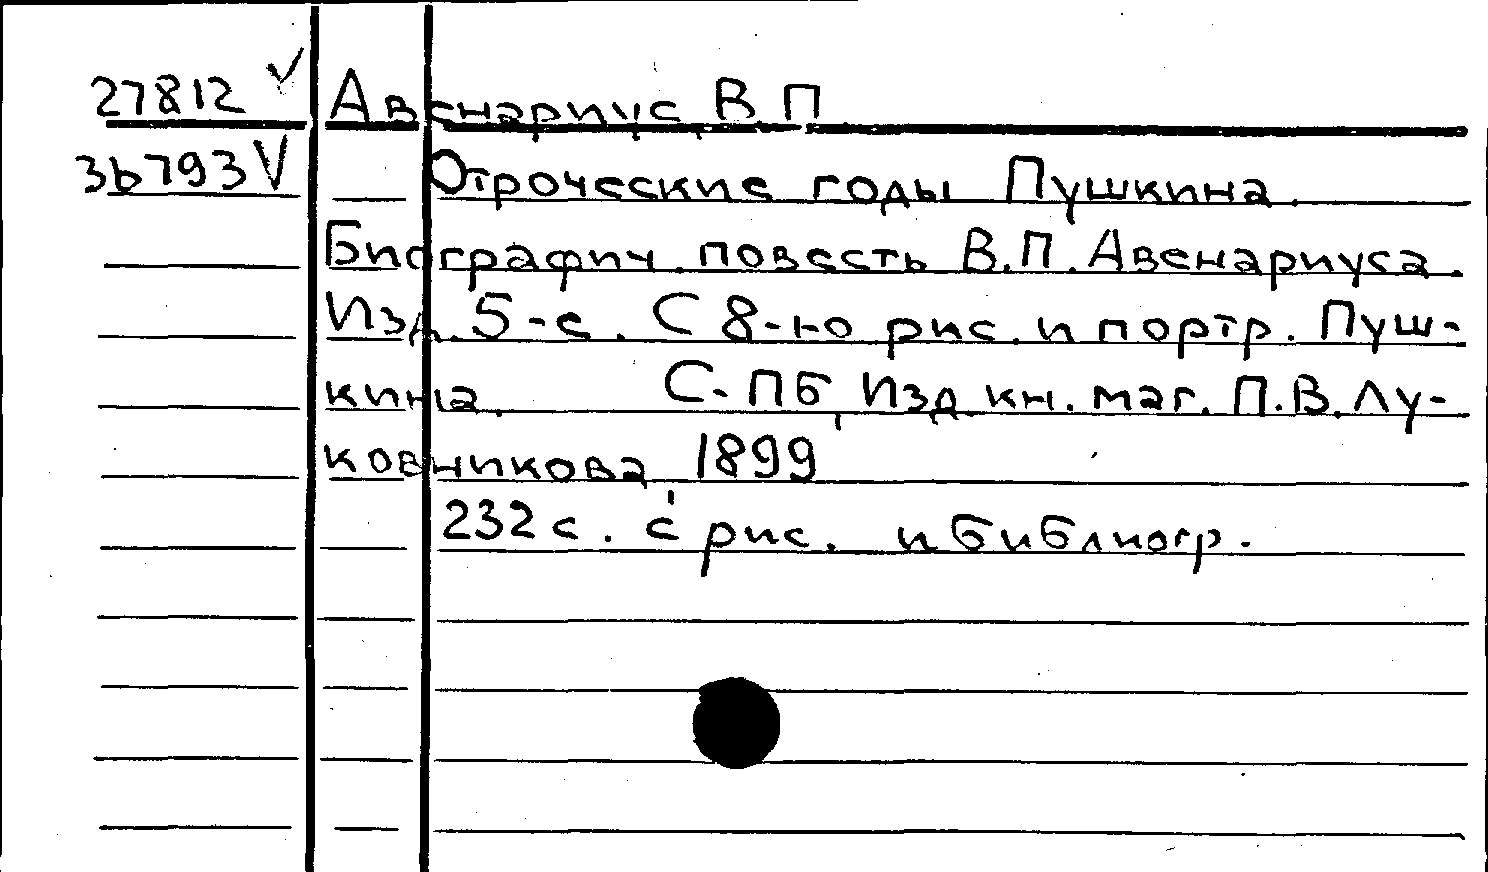 27812 ✓ Авенариус, В.П.
36793 V Отроческие годы Пушкина.
Биографич. повесть В.П. Авенариуса.
Изд. 5-е. С 8-ю рис. и портр. Пуш-
кина. С-ПБ, Изд. кн. маг. П.В. Лу-
ковникова, 1899
232 с. с рис. и библиогр.